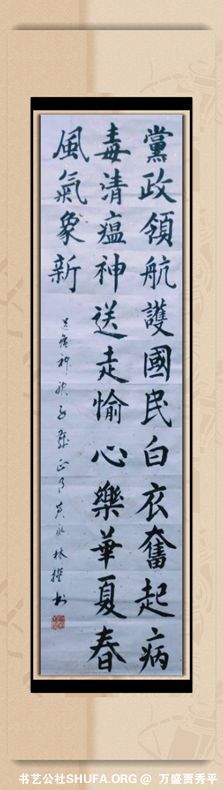 黨政領航護國民白衣奮起病
毒清瘟神送走愉心樂華夏春
風氣象新
书艺公社SHUFA.ORG @ 万盛贾秀平